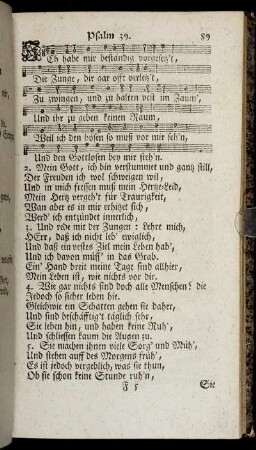 Psalm 39. 89
Ich habe mir beständig vorgesetz't,
Die Zunge, die gar offt verletz't,
Zu zwingen, und zu halten veit im Zaum',
Und ihr zu geben keinen Raum,
Weil ich den bösen so must vor mir seh'n,
Und den Gottlosen bey mir steh'n.
2. Mein Gott, ich bin verstummet und gantz still,
Der Freuden ich wol schweigen wil,
Und in mich fressen muß mein Hertze-Leid,
Mein Hertz vergeh't für Traurigkeit,
Wan aber es in mir erhitzet sich,
Werd' ich entzündet innerlich,
3. Und rede mit der Zungen: Lehre mich,
HErr, daß ich nicht leb' ewiglich,
Und daß ein vestes Ziel mein Leben hab',
Und ich davon müss' in das Grab.
Ein' Hand breit meine Tage sind allhier,
Mein Leben ist, wie nichts vor dir.
4. Wie gar nichts sind doch alle Menschen! die
Jedoch so sicher leben hie.
Gleichwie ein Schatten gehen sie daher,
Und sind beschäfftig't täglich sehr,
Sie leben hin, und haben keine Ruh',
Und schliessen kaum die Augen zu.
5. Sie machen ihnen viele Sorg' und Müh',
Und stehen auff des Morgens früh',
Es ist jedoch vergeblich, was sie thun,
Ob sie schon keine Stunde ruh'n,
F 5 Sie